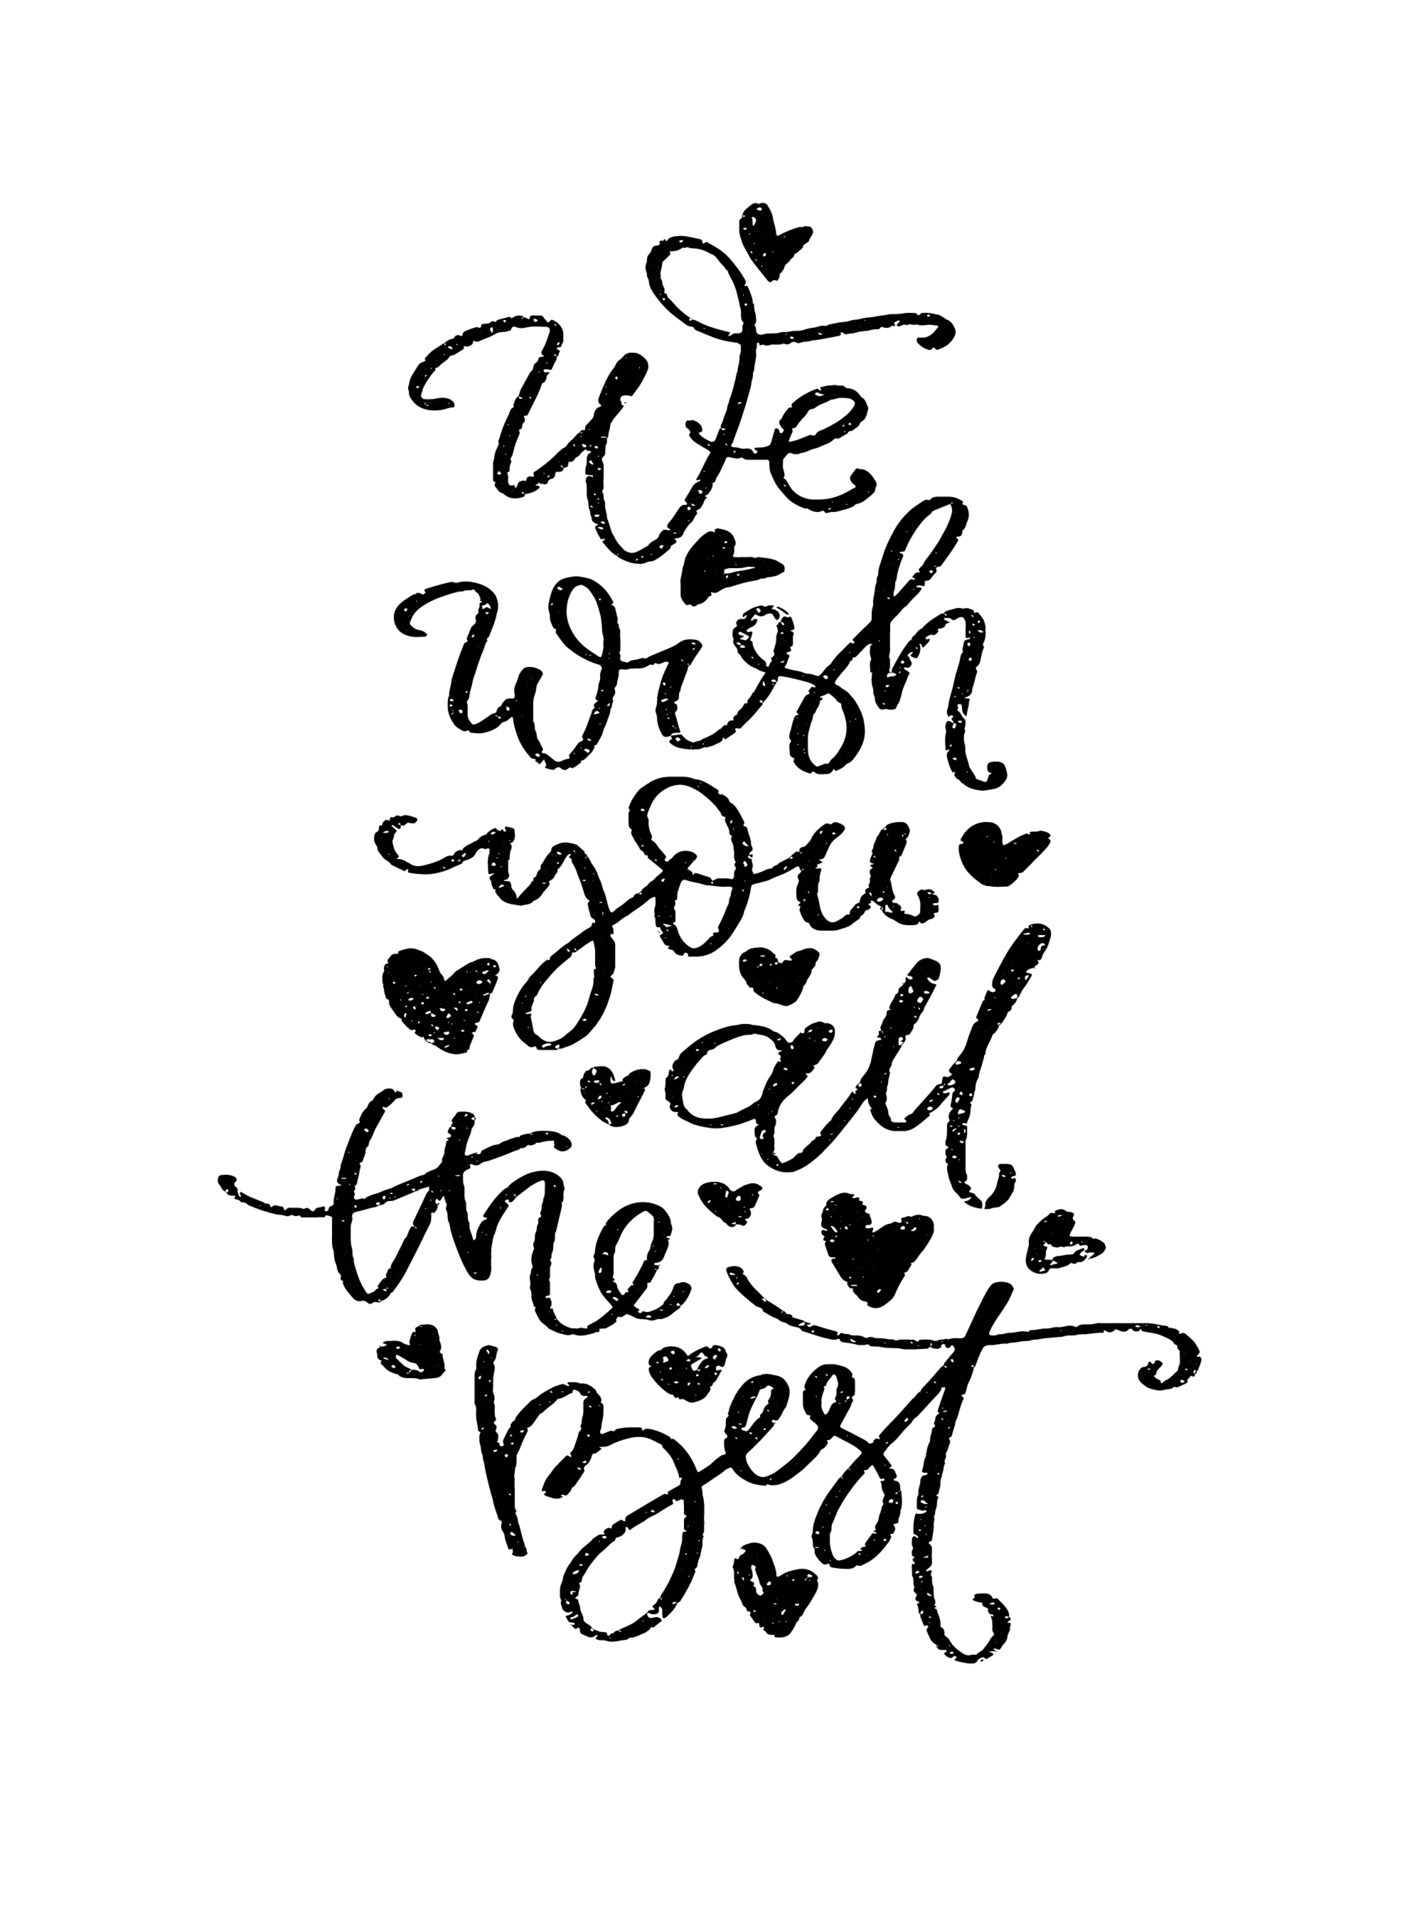 We
wish
you
all
the
Best